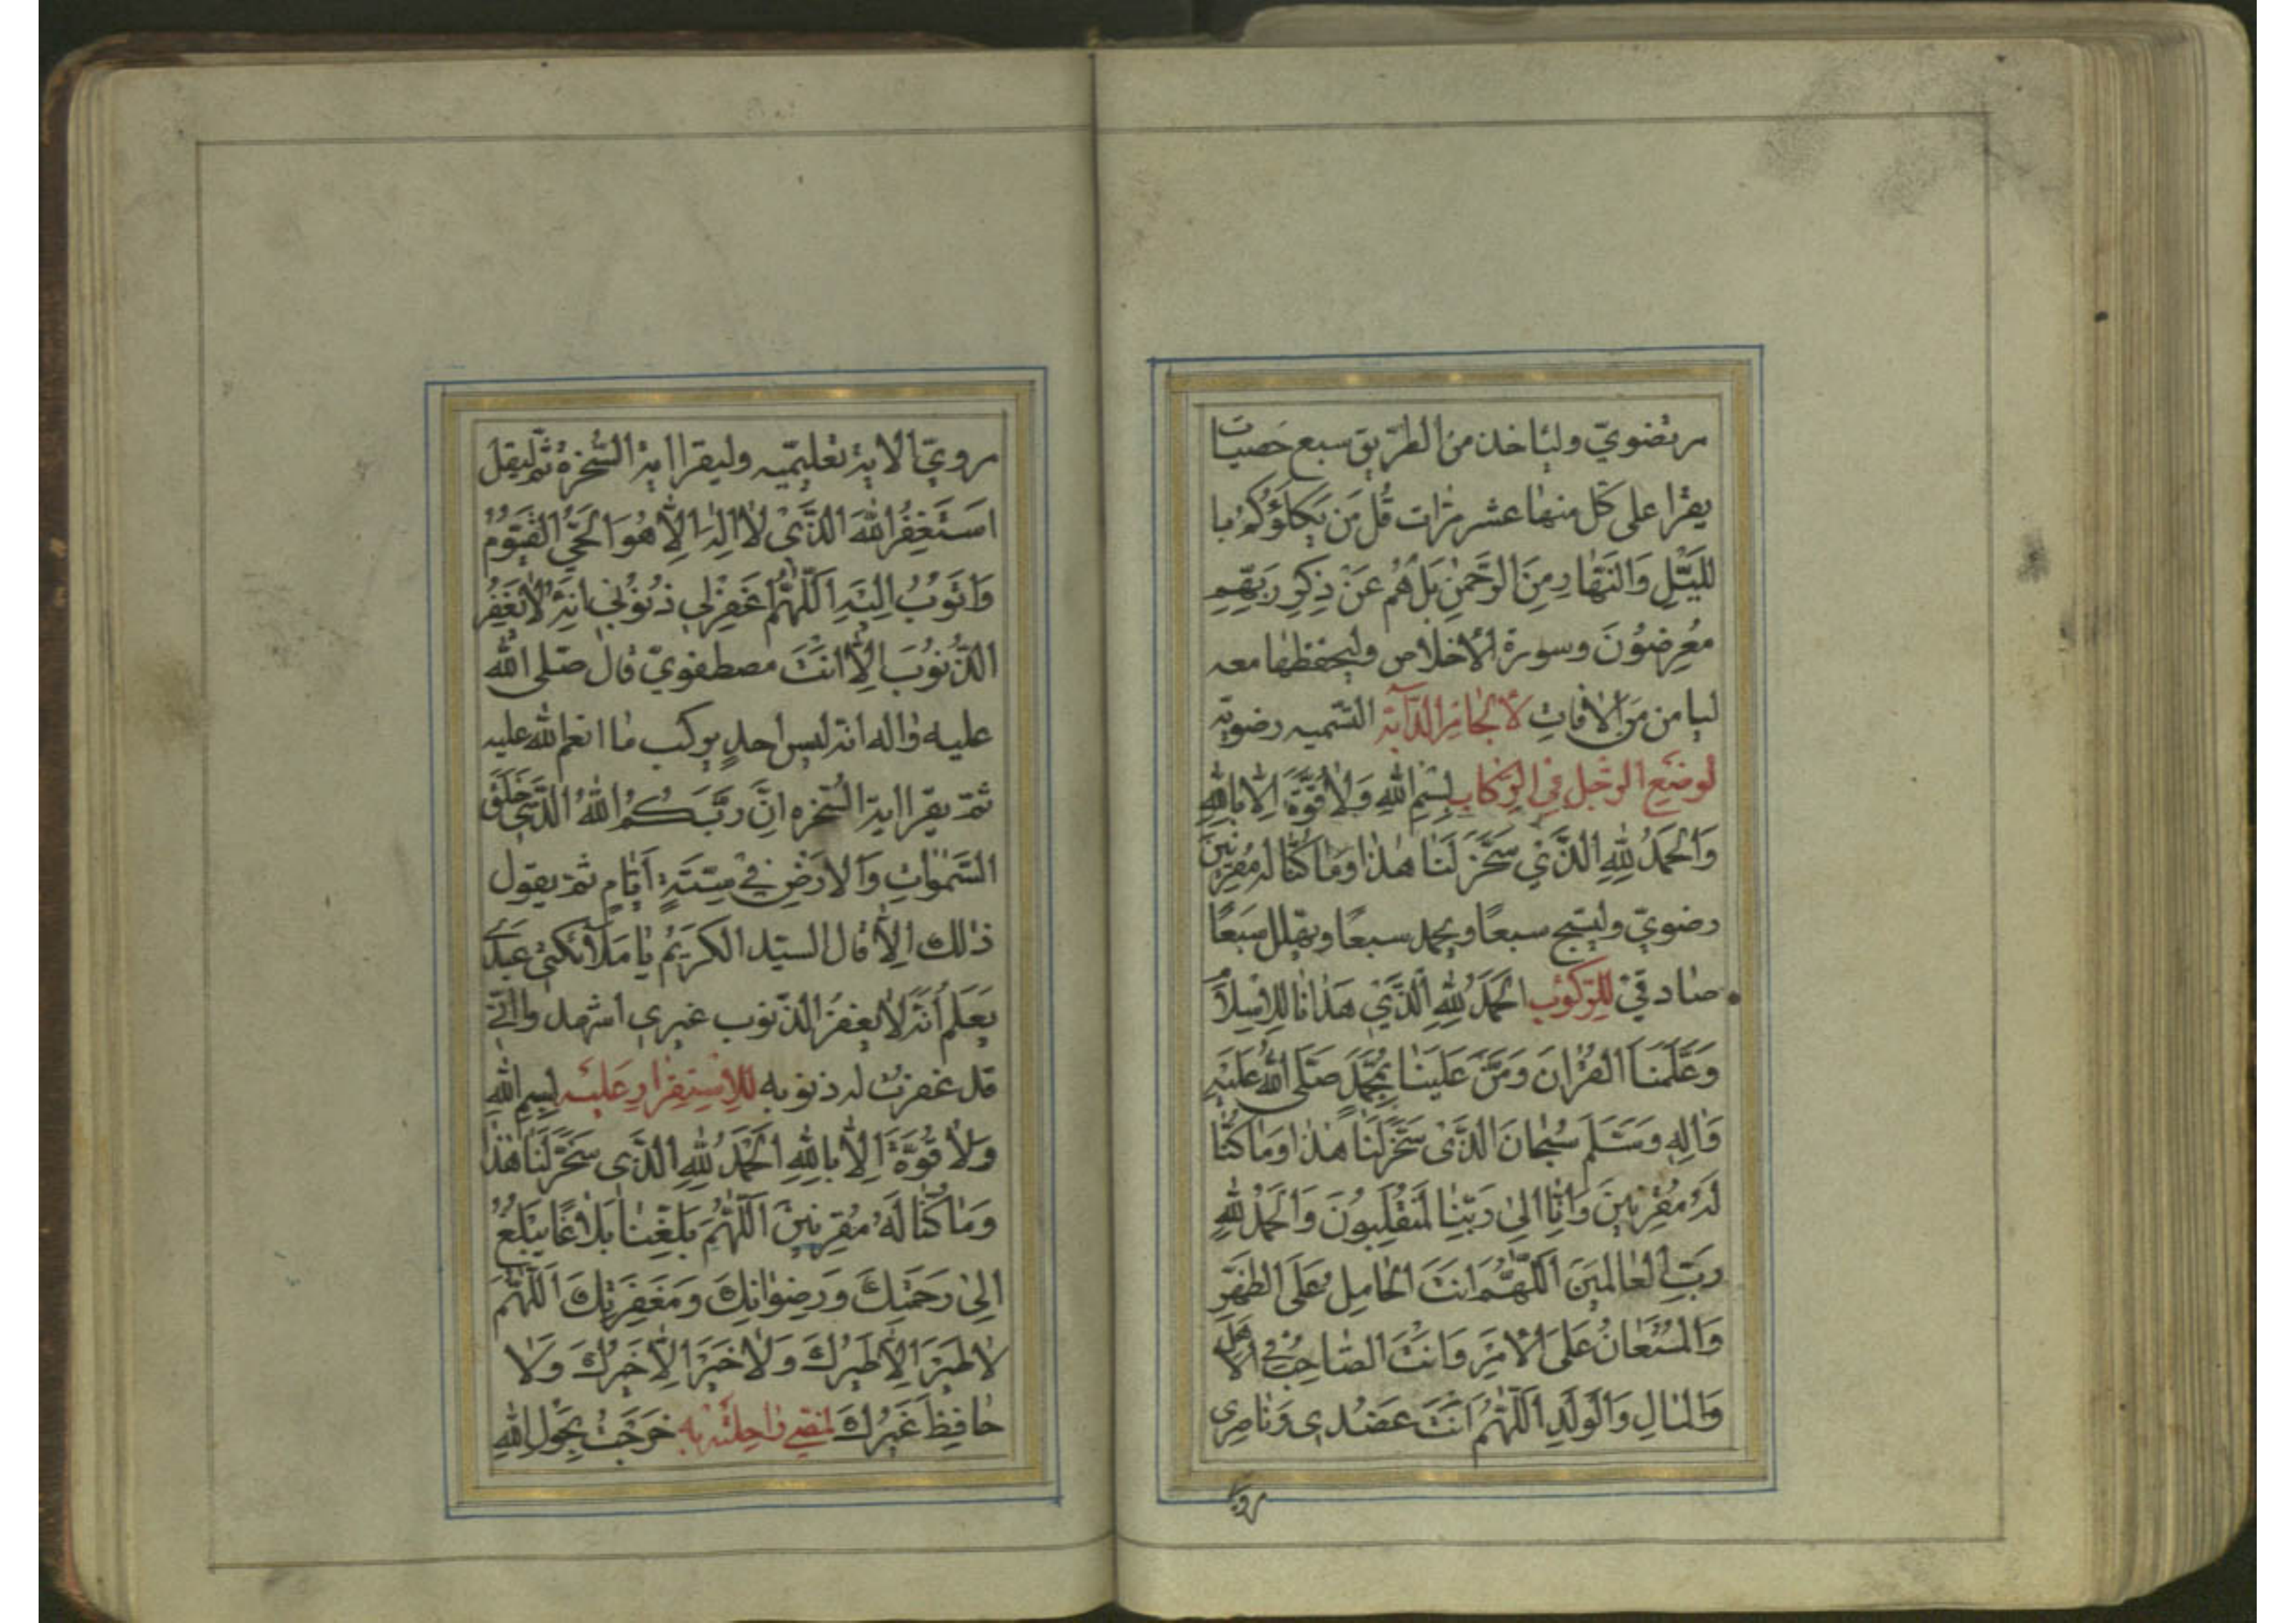 مرتضويّ وليأخذ من الطّريق سبع حصيات
يقرا على كل منها عشر مرّات قُل مَن يَكلَؤُكُم با
للَّيلِ وَالنَّهارِ مِنَ الرَّحمنِ بَل هُم عَن ذِكرِ رَبِّهِم
مُعرِضُونَ وسورة الأخلاص وليحفظها معه
ليامن مَنَ الأفاتِ لأِلجامِ الدّآبّة التّسميه رضويّه
لوضعِ الرِّجل في الرّكاب بِسمِ اللهِ وَلا قُوَّةَ اِلّا بِاللهِ
وَالحَمدُ لِلّهِ الَّذي سَخَّرَ لَنا هذا وَما كُنّا لَهُ مُقرِنينَ
رضويّ وليسبّح سبعًا ويحمد سبعًا ويهلل سَبعًا
صادقيّ للرّكوب الحَمدُ لِلّهِ الَّذي هَدانا لِلإسلامِ
وَعَلَّمَنَا القُرانَ وَمَنَّ عَلَينا بِمُحَمَّدٍ صَلَّى اللهُ عَلَيهِ
وَالِهِ وَسَلَّمَ سُبحانَ الَّذي سَخَّرَ لَنا هذا وَما كُنّا
لَهُ مُقرِنينَ وَاِنّا اِلى رَبِّنا لَمُنقَلِبُونَ وَالحَمدُ لِلّهِ
رَبِّ العالَمينَ اَللّهُمَّ اَنتَ الحامِلُ عَلَى الظَّهرِ
وَالمُستَعانُ عَلَى الأمرِ وَاَنتَ الصّاحِبُ فِي الأهلِ
وَالمالِ وَالوَلَدِ اَللّهُمَّ اَنتَ عَضُدي وَناصِري
مرويّ الأية تعليميّه وليقرا اية السّخرة ثمّ ليقل
اَستَغفِرُ اللهَ الَّذي لا اِلهَ اِلّا هُوَ الحَيُّ القَيُّومُ
وَاَتُوبُ اِلَيهِ اَللّهُمَّ اغفِر لي ذُنُوبي اِنَّهُ لا يَغفِرُ
الذُّنُوبَ اِلّا اَنتَ مصطفويّ قال صلى الله
عليه واله انه ليس احد يركب ما انعم الله عليه
ثمّ يقرا اية السّخره اِنَّ رَبَّكُمُ اللهُ الَّذي خَلَقَ
السَّمواتِ وَالأرضَ في سِتَّةِ اَيّامٍ ثمّ يقول
ذلك اِلّا قال السيّد الكريم يا ملآئكتي عبدي
يعلم أنّه لا يغفر الذّنوب غيري اشهدوا انّي
قد غفرت له ذنوبه للاِستِقرارِ عَليه بِسمِ اللهِ
وَلا قُوَّةَ اِلّا بِاللهِ الحَمدُ لِلّهِ الَّذي سَخَّرَ لَنا هذا
وَما كُنّا لَهُ مُقرِنينَ اَللّهُمَّ بَلِّغنا بَلاغًا يَبلُغُ
اِلى رَحمَتِكَ وَرِضوانِكَ وَمَغفِرَتِكَ اَللّهُمَّ
لا طَيرَ اِلّا طَيرُكَ وَلا خَيرَ اِلّا خَيرُكَ وَلا
حافِظَ غَيرُكَ لمضي راحلته به خَرَجتُ بِحَولِ اللهِ